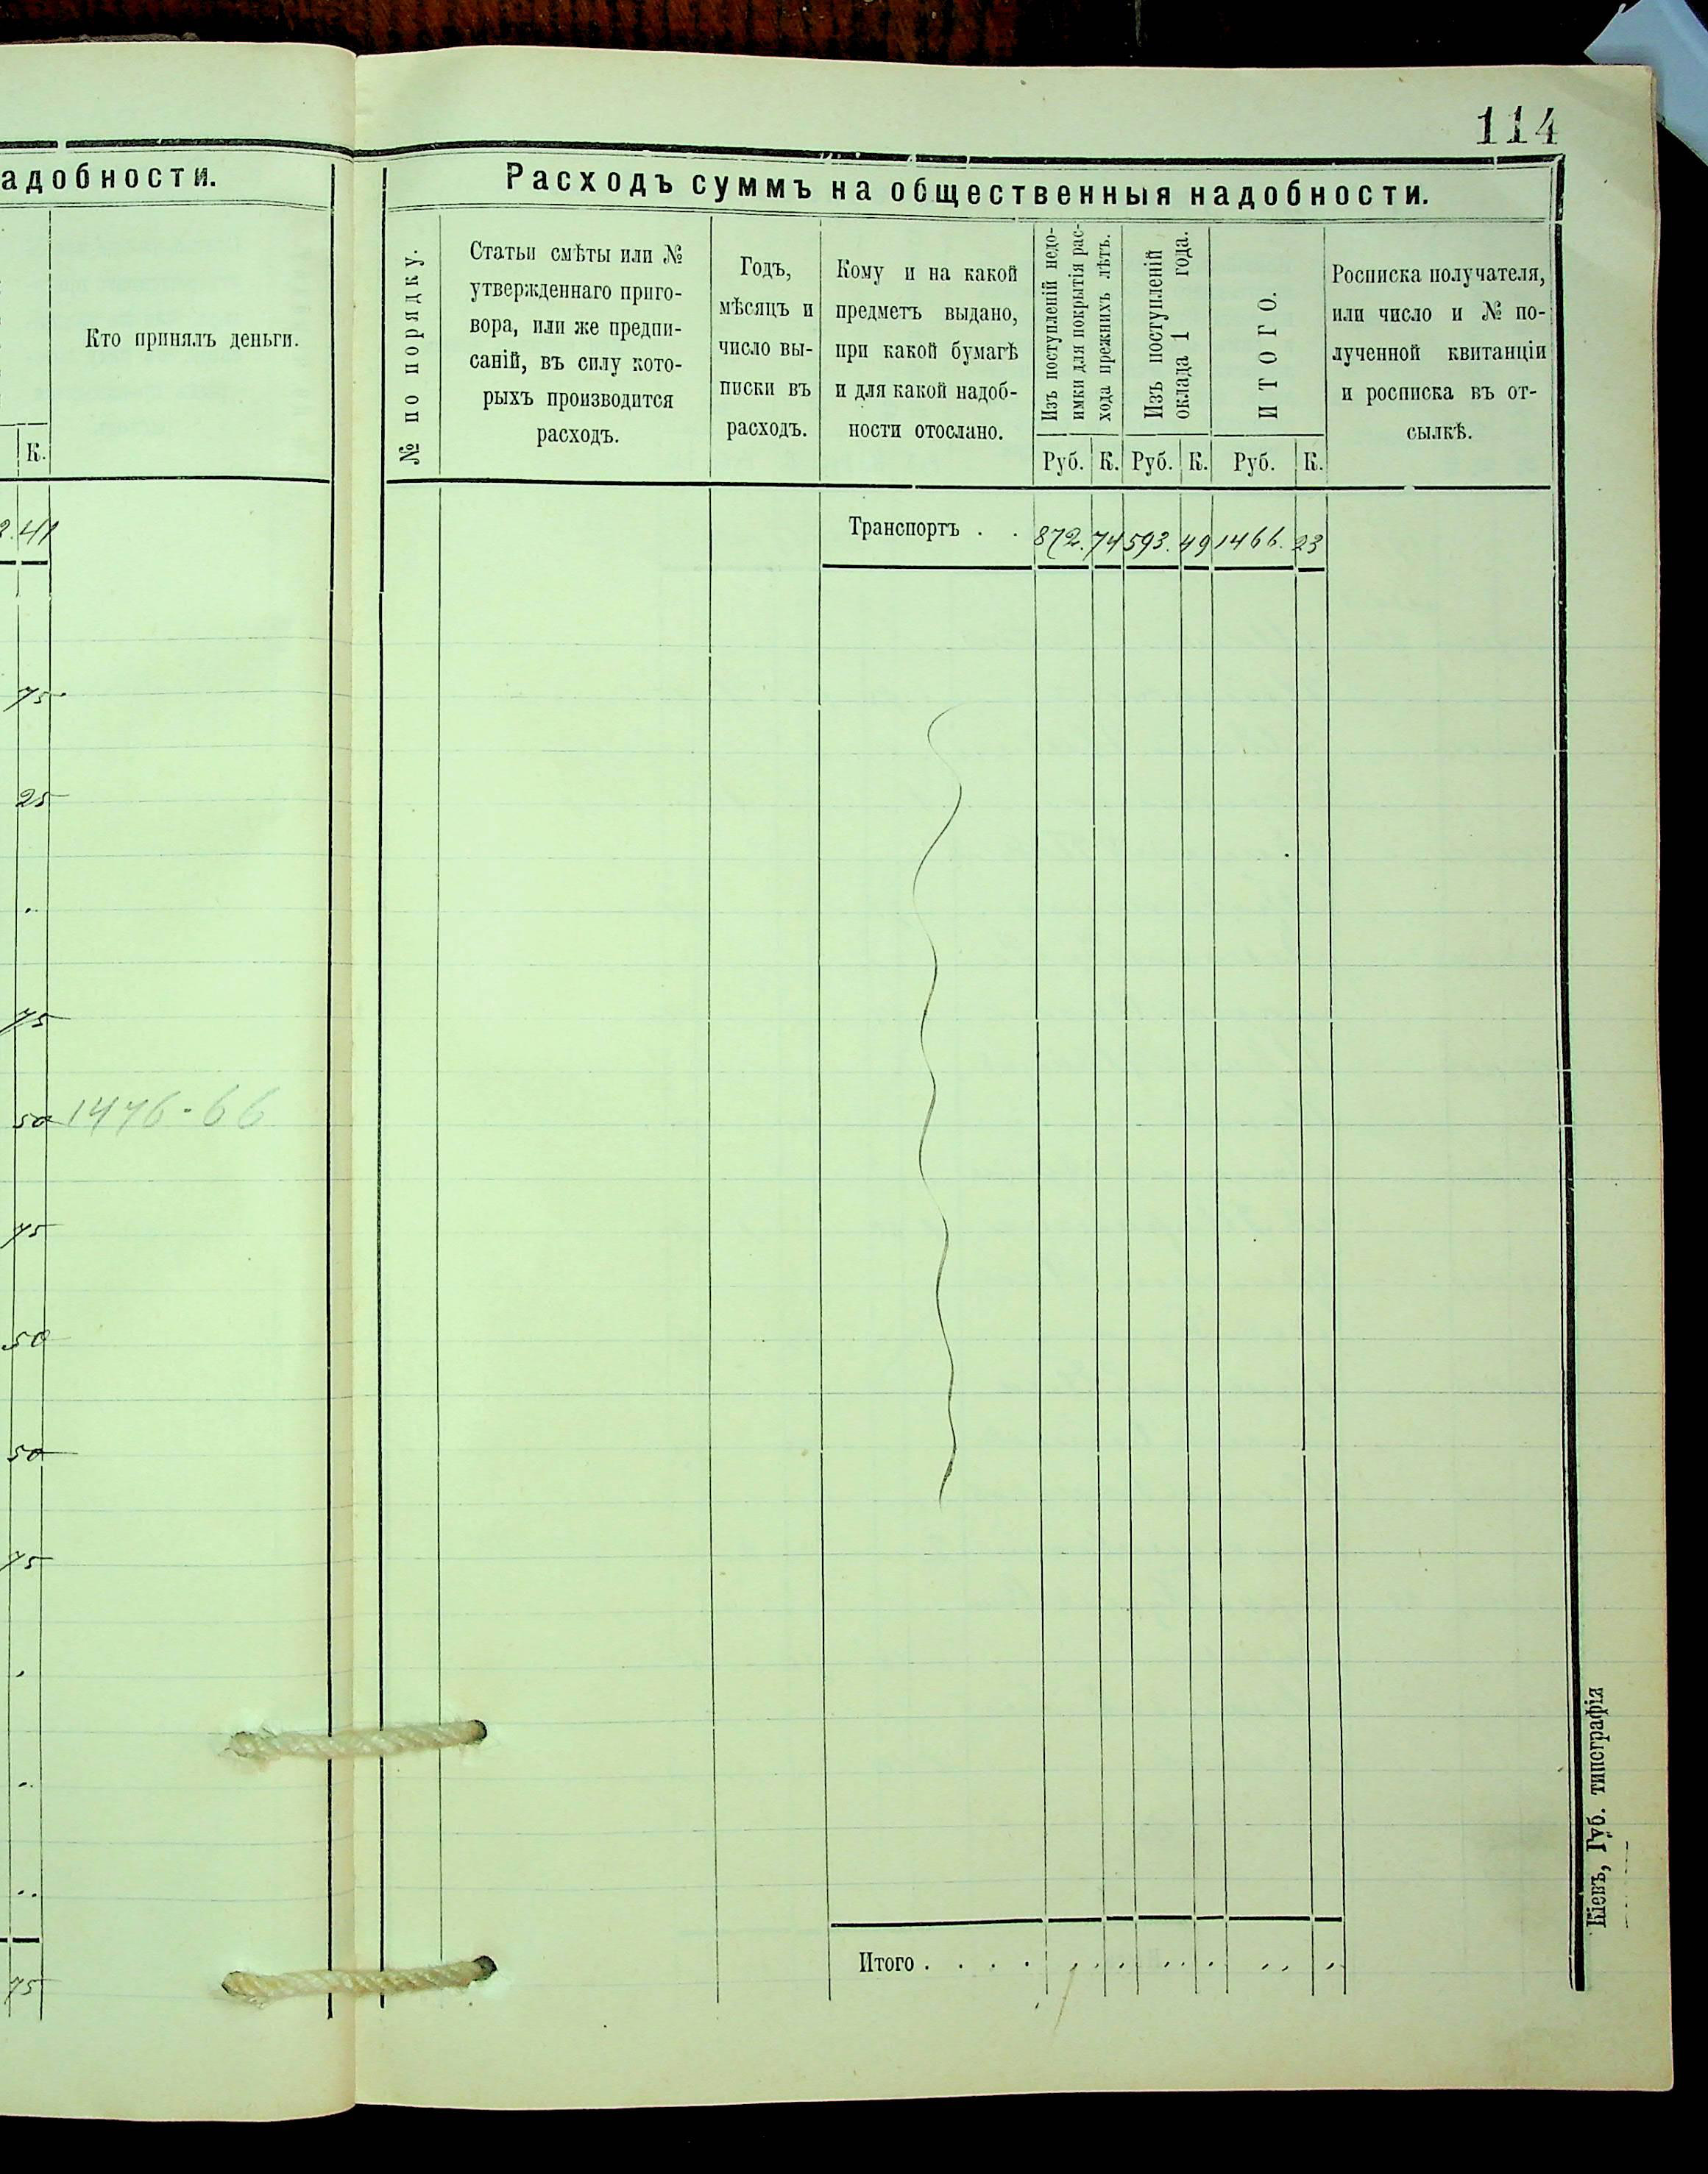 114
адобности.
Кто принялъ деньги.
К.
41
75
25
75
50 1476-66
75
50
50
75
75
Расходъ суммъ на общественныя надобности.
№ по порядку.
Статьи смѣты или №
утвержденнаго приго-
вора, или же предпи-
саній, въ силу кото-
рыхъ производится
расходъ.
Годъ,
мѣсяцъ и
число вы-
писки въ
расходъ.
Кому и на какой
предметъ выдано,
при какой бумагѣ
и для какой надоб-
ности отослано.
Изъ поступленій недо-
имки для покрытія рас-
хода прежнихъ лѣтъ.
Изъ поступленій
оклада 1 года.
ИТОГО.
Росписка получателя,
или число и № по-
лученной квитанціи
и росписка въ от-
сылкѣ.
Руб. К. Руб. К. Руб. К.
Транспортъ . . 872. 74 593. 49 1466. 23
Итого . . . .
Кіевъ, Губ. типографія